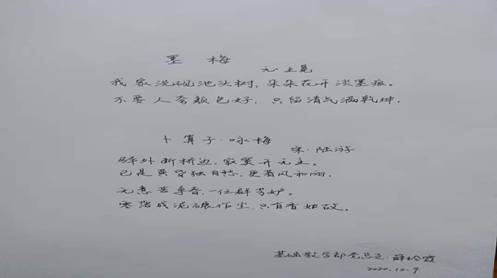 墨 梅
元·王冕
我家洗砚池头树，朵朵花开淡墨痕。
不要人夸颜色好，只留清气满乾坤。
卜算子·咏梅
宋·陆游
驿外断桥边，寂寞开无主。
已是黄昏独自愁，更着风和雨。
无意苦争春，一任群芳妒。
零落成泥碾作尘，只有香如故。
基础教学部党总支：薛玲霞
2020.12.9